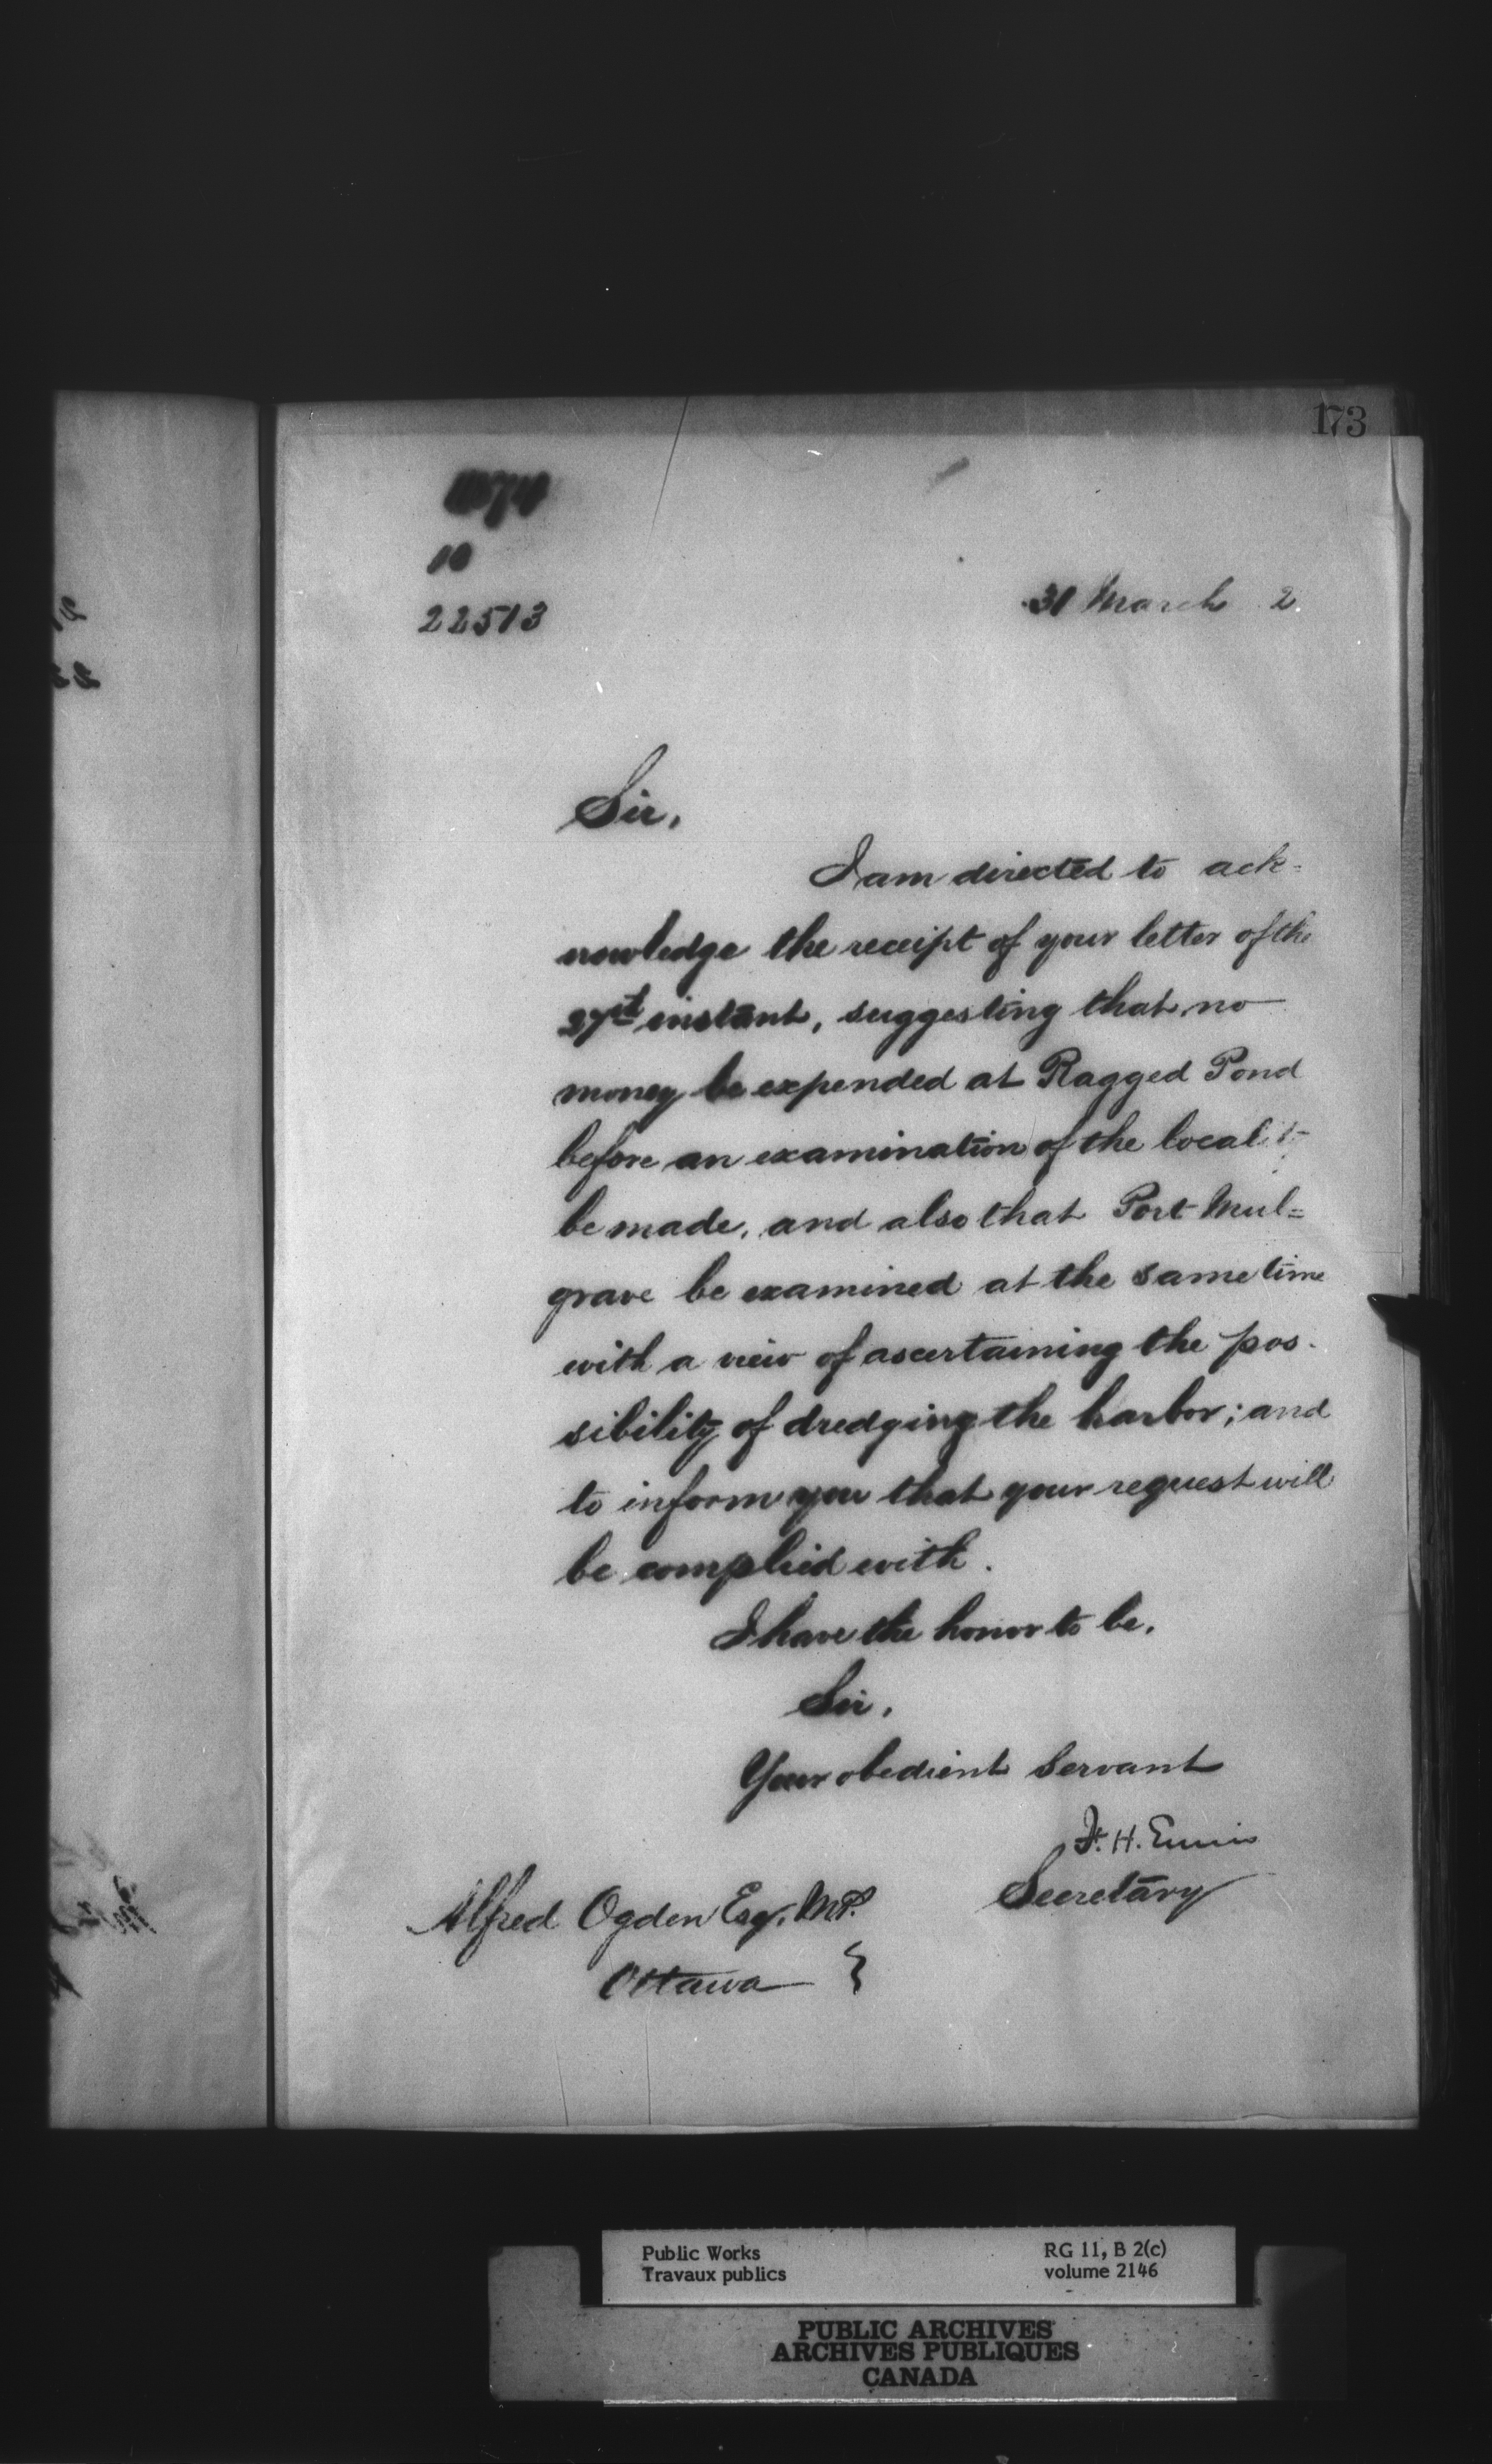 173
10
22513
31 March 2.
Sir,
I am directed to ack=
nowledge the receipt of your letter of the
27st instant, suggesting that no
money be expended at Ragged Pond
before an examination of the localit
be made, and also that Port Mul=
grave be examined at the same time
with a view of ascertaining the pos-
sibility of dredging the harbor; and
to inform you that your request will
be complied with.
I have the honor to be,
Sir,
Your obedient Servant
F. H. Ennis
Secretary
Alfred Ogden Esq. M.P.
Ottawa
Public Works
Travaux publics
RG 11, B 2(c)
volume 2146
PUBLIC ARCHIVES
ARCHIVES PUBLIQUES
CANADA